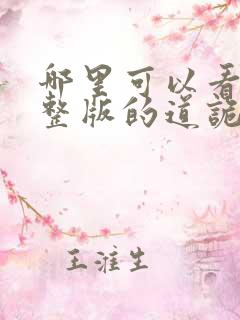 哪里可以看
整版的道诡
王淮生